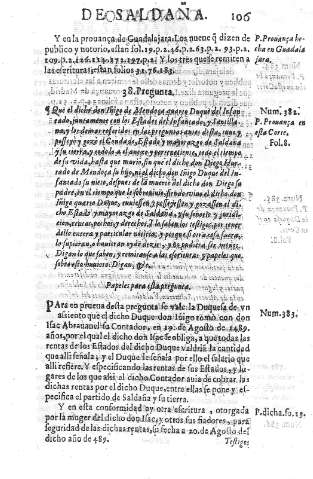 DE SALDAÑA. 106
Y en la prouança de Guadalajara. Los nueue q̃ dizen de
publico y notorio, estan fol. 19. p. 2. 46. p. 2. 63. p. 2. 93. p. 2.
109. p. 2. 126. 132. 171. 197. p. 1. Y los tres que se remiten a
las escrituras, estan folios 32. 76. 183.
P. Prouança he-
cha en Guadala
jara.
38. Pregunta.
Que el dicho don Iñigo de Mendoça quarto Duque del Infan
tado, juntamente con los Estados del Infantado, y Santilla-
na, y los demas referidos en las preguntas antes desta, tuuo,
posseyò y gozò el Condado, Estado y mayorazgo de Saldaña
y su tierra, todo el tiempo
de su vida, hasta que murio, sin que el dicho don Diego Hur-
tado de Mendoça su hijo, ni el dicho don Iñigo Duque del In-
fantado su nieto, despues de la muerte del dicho don Diego su
padre, en el tiempo que le
Iñigo quarto Duque, tuuiessen, y possyessen, y gozassen el di-
cho Estado y mayorazgo de Saldaña, y su
cion, rentas, pechos, y derechos. Y lo saben los testigos, por tener
dello cierta y particular noticia, y porque si otra cosa fuera,
lo supieran, o huuieran oydo dezir, y no pudiera ser menos.
Digan lo que saben, y remitanse a las escrituras, y papeles que
sobre esto huuiere. Digan, &c.
Num. 382.
P. Prouança en
esta Corte.
Fol. 8.
Papeles para esta pregunta.
PAra en prueua desta pregunta se vale la Duquesa de vn
assiento que el dicho Duque don Iñigo tomò con don
Isac Abrauanel su Contador, en 19. de Agosto de 1489.
años, por el qual el dicho don Isac se obliga, a que todas las
rentas de los Estados del dicho Duque valdrìa la cantidad
que alli señala, y el Duque le señala por ello el salario que
alli refiere. Y especificando las rentas de sus Estados, y lu-
gares de los que assi el dicho Contador auia de cobrar las
dichas rentas por el dicho Duque, entre ellas se pone y es-
pecifica el partido de Saldaña y su tierra.
Num. 383.
Y en esta conformidad ay otra escritura, otorgada
por la muger del dicho don Isac, y otros sus fiadores, para
seguridad de las dichas rentas, su fecha a 20. de Agosto del
dicho año de 489.
P. dicha. fu. 19.
Testigos